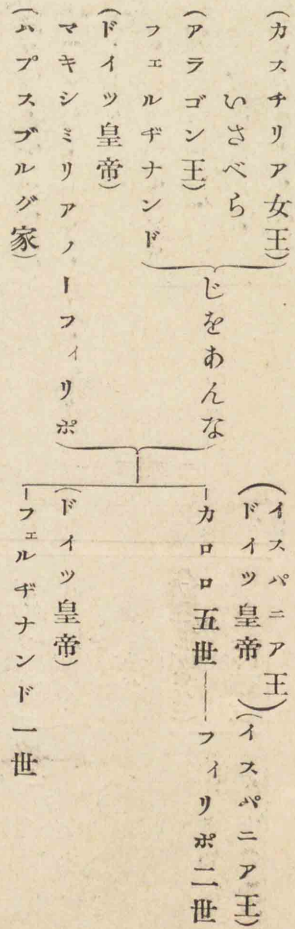 (カスチリア女王)
いさべら
(アラゴン王)
フェルヂナンド
じをあんな
(ドイツ皇帝)
マキシミリアノーフィリポ
(ハプスブルグ家)
(イスパニア王
ドイツ皇帝)
(イスパニア王)
カロロ五世――フィリポ二世
(ドイツ皇帝)
フェルヂナンド一世